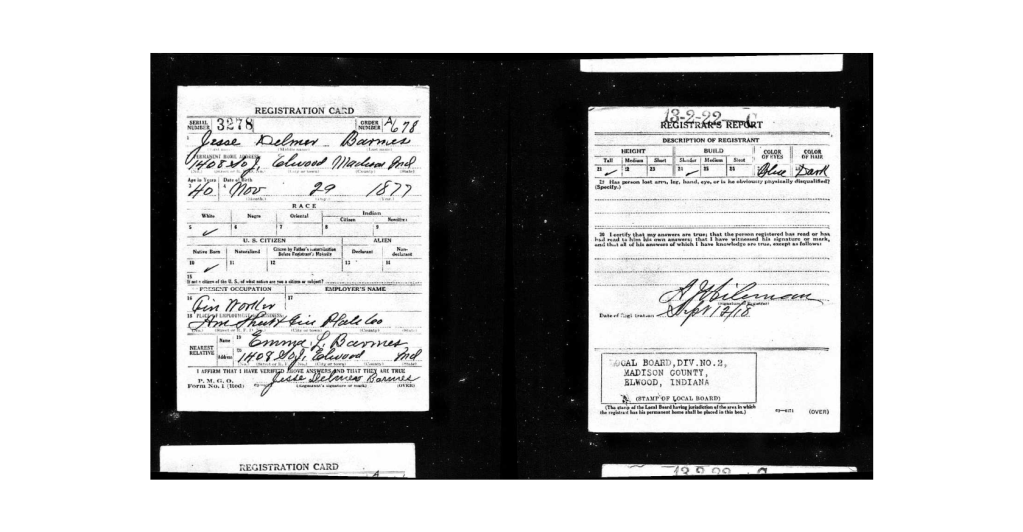 REGISTRATION CARD
SERIAL NUMBER 3278 ORDER NUMBER A 678
1 Jesse Delmer Barnes
PERMANENT HOME ADDRESS
1408 So J. Elwood Madison Ind
Age in Years Date of Birth
40 Nov 29 1877
RACE
White Negro Oriental Indian
Citizen Noncitizen
5 ✓ 6 7 8 9
U. S. CITIZEN ALIEN
Native Born Naturalized Citizen by Father's Naturalization Before Registrant's Majority Declarant Non-declarant
10 ✓ 11 12 13 14
15
If not a citizen of the U. S., of what nation are you a citizen or subject?
PRESENT OCCUPATION EMPLOYER'S NAME
16 Tin Worker 17
18 PLACE OF EMPLOYMENT OR BUSINESS
Am Sheet & Tin Plate Co
NEAREST RELATIVE Name 19 Emma L. Barnes
Address 20 1408 So J. Elwood Ind
I AFFIRM THAT I HAVE VERIFIED ABOVE ANSWERS AND THAT THEY ARE TRUE
P. M. G. O.
Form No. 1 (Red) Jesse Delmer Barnes
(Registrant's signature or mark) (OVER)
REGISTRATION CARD
13-2-22 C
REGISTRAR'S REPORT
DESCRIPTION OF REGISTRANT
HEIGHT BUILD COLOR OF EYES COLOR OF HAIR
Tall Medium Short Slender Medium Stout
21 ✓ 22 23 24 ✓ 25 26 Blue Dark
29 Has person lost arm, leg, hand, eye, or is he obviously physically disqualified?
(Specify.)
30 I certify that my answers are true; that the person registered has read or has had read to him his own answers; that I have witnessed his signature or mark, and that all of his answers of which I have knowledge are true, except as follows:
(Signature of Registrar)
Date of Registration Sept 12/18
LOCAL BOARD, DIV. NO. 2,
MADISON COUNTY,
ELWOOD, INDIANA
(STAMP OF LOCAL BOARD)
(The stamp of the Local Board having jurisdiction of the area in which the registrant has his permanent home shall be placed in this box.)
(OVER)